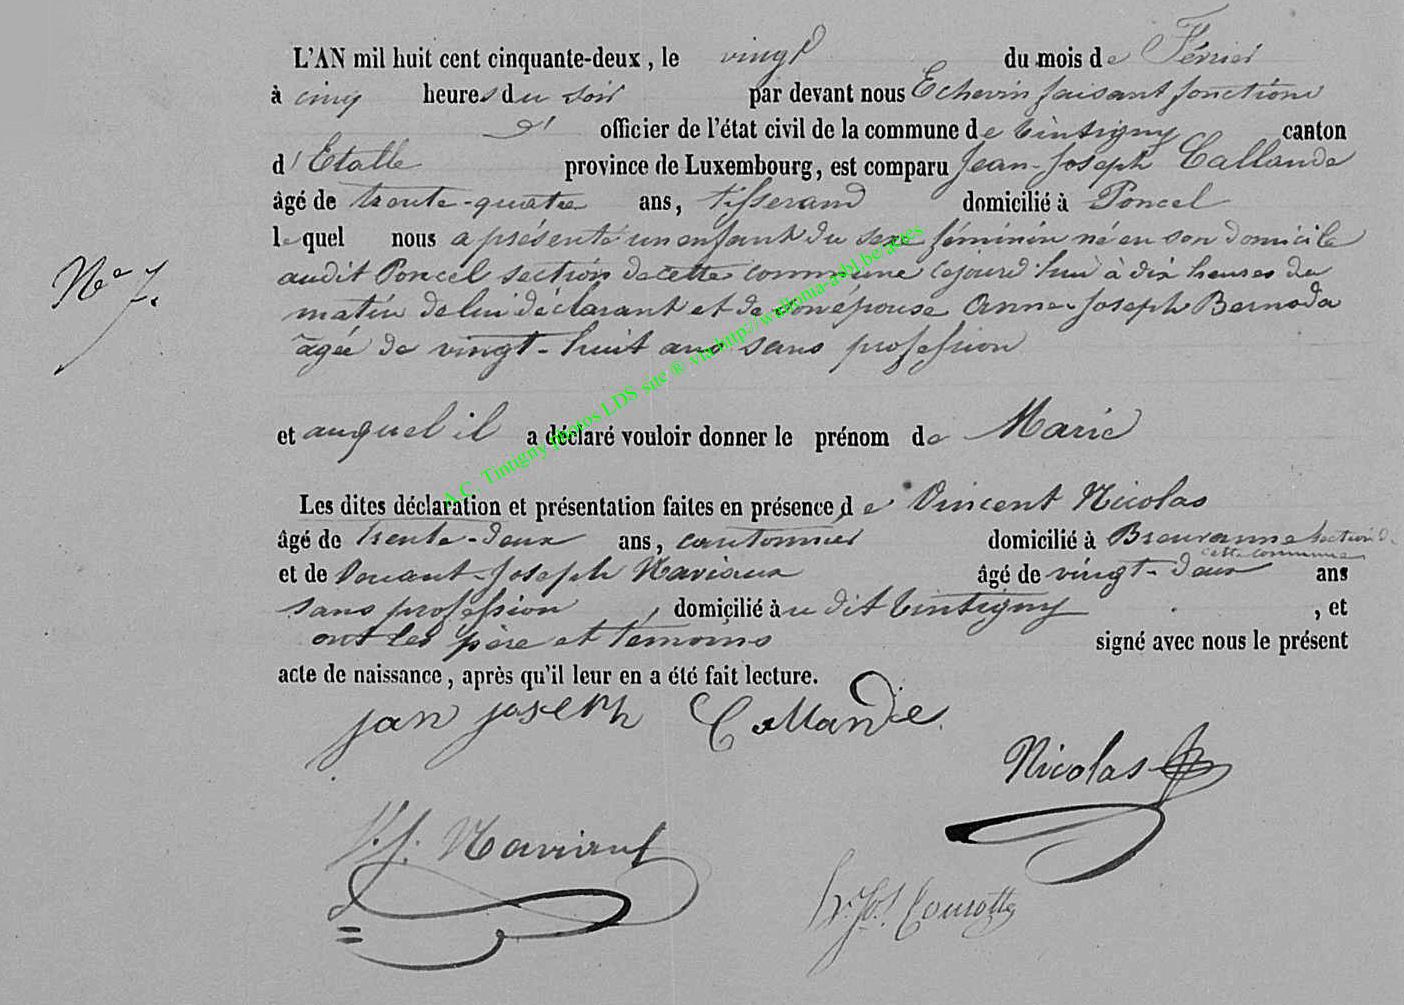 L'AN mil huit cent cinquante-deux, le vingt du mois de Février
à cinq heures du soir par devant nous Echevin faisant fonctions
d' officier de l'état civil de la commune de Tintigny canton
d'Etalle province de Luxembourg, est comparu Jean-Joseph Callande
âgé de trente-quatre ans, tisserand domicilié à Poncel
lequel nous a présenté un enfant du sexe féminin né en son domicile
N° 7.
audit Poncel section de cette commune cejourd'hui à dix heures du
matin de lui déclarant et de son épouse Anne-Joseph Bernada
âgée de vingt-huit ans sans profession
et auquel il a déclaré vouloir donner le prénom de Marie
Les dites déclaration et présentation faites en présence de Vincent Nicolas
âgé de trente-deux ans, cantonnier domicilié à Breuvanne section de
cette commune
et de Joseph Naviaux âgé de vingt-deux ans
sans profession, domicilié au dit Tintigny, et
ont les père et témoins signé avec nous le présent
acte de naissance, après qu'il leur en a été fait lecture.
jan joseph Callande
Nicolas
J. Naviaux
A.C. Tintigny photos LDS site ® via http://wallonia-asbl.be/actes